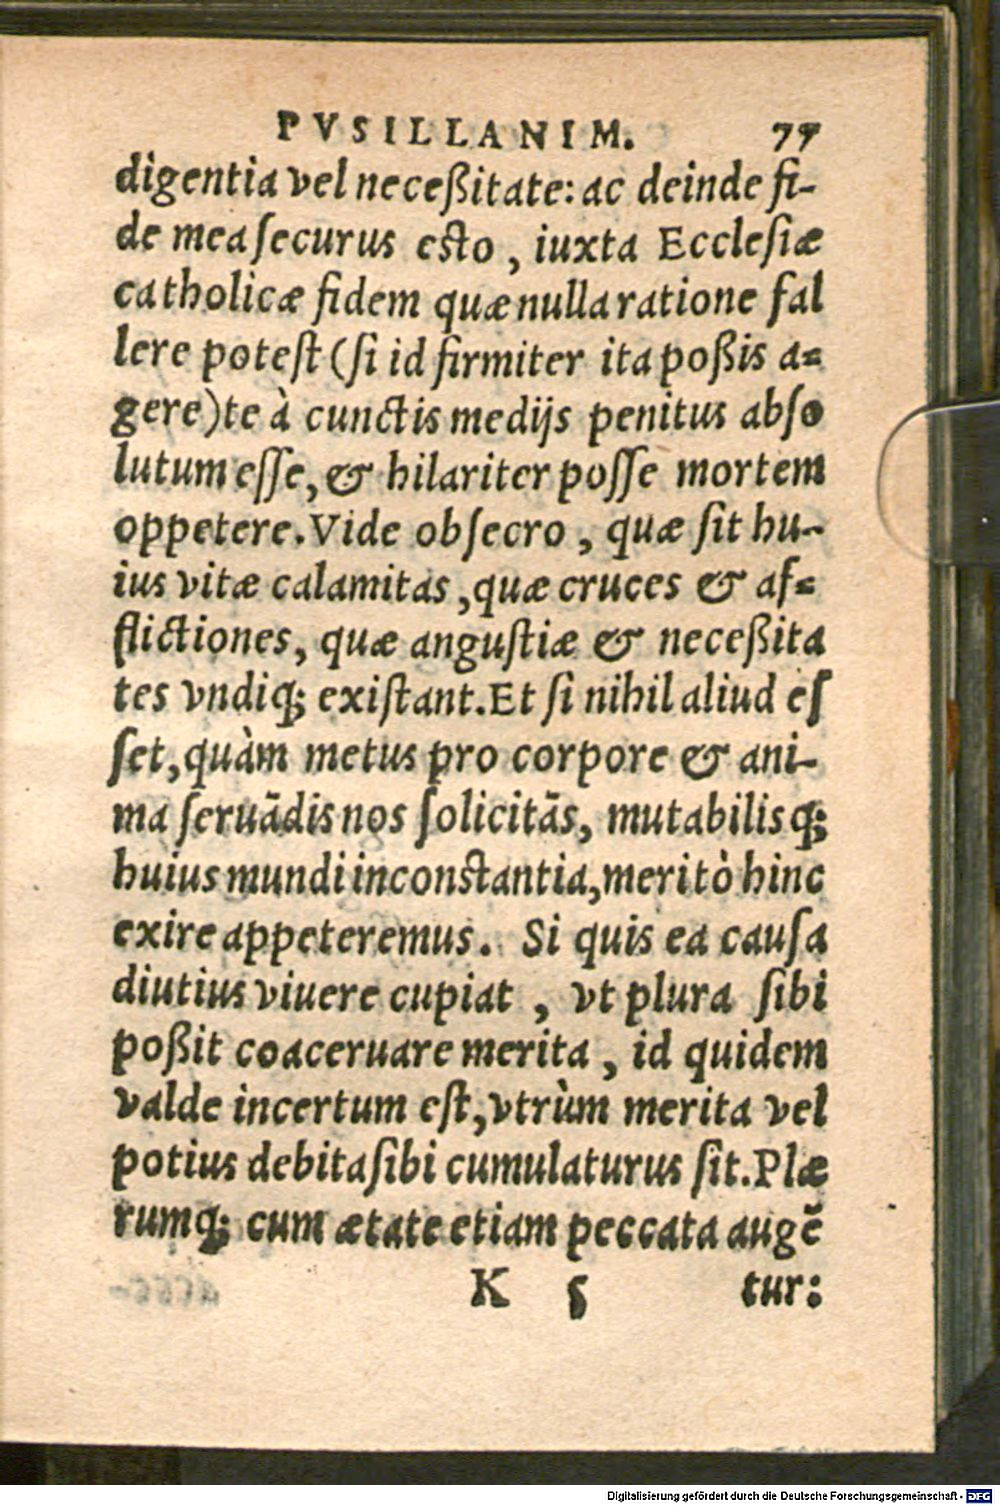 PVSILLANIM. 77
digentia vel neceßitate: ac deinde fi-
de mea ſecurus eſto, iuxta Eccleſiæ
catholicæ fidem quæ nulla ratione fal
lere poteſt (ſi id firmiter ita poßis a-
gere) te à cunctis medijs penitus abſo
lutum eſſe, & hilariter poſſe mortem
oppetere. Vide obſecro, quæ ſit hu-
ius vitæ calamitas, quæ cruces & af-
flictiones, quæ anguſtiæ & neceßita
tes vndiq; exiſtant. Et ſi nihil aliud eſ
ſet, quàm metus pro corpore & ani-
ma ſeruãdis nos ſolicitãs, mutabilisq;
huius mundi inconſtantia, meritò hinc
exire appeteremus. Si quis ea cauſa
diutius viuere cupiat, vt plura ſibi
poßit coaceruare merita, id quidem
valde incertum eſt, vtrùm merita vel
potius debita ſibi cumulaturus ſit. Plæ
rumq; cum ætate etiam peccata augẽ
K 5 tur:
Digitalisierung gefördert durch die Deutsche Forschungsgemeinschaft - DFG